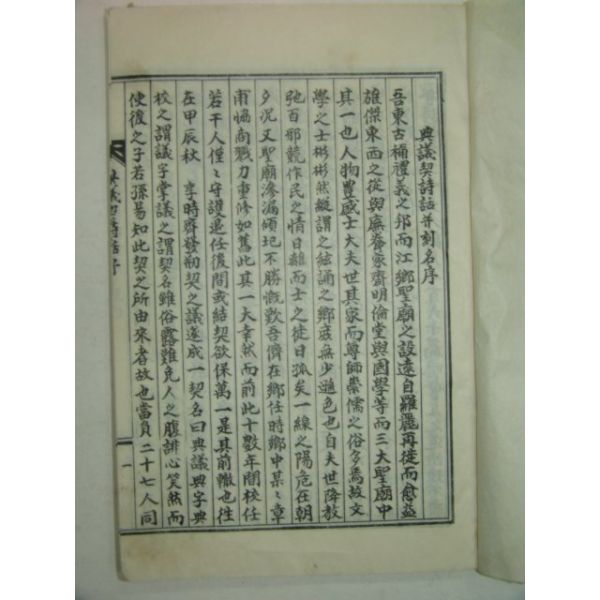 典議契詩話并刻名序
吾東古稱禮義之邦而江鄉聖廟之設遠自羅麗再徙而愈益
雄傑東西之從與廡奉家齋明倫堂與國學等而三大聖廟中
其一也人物豊盛士大夫世其家而尊師崇儒之俗多焉故文
學之士彬彬然縱謂之絃誦之鄉庶無少遜色也自夫世降敎
弛百邪競作民之情日離而士之徒日孤矣一線之陽危在朝
夕況又聖廟滲漏傾圮不勝慨歎吾儕在鄉任時鄉中某某章
甫恊商戮力重修如舊此其一大幸然而前此十數年間校任
若干人僅僅守護退任後間或結契欲保萬一是其前轍也往
在甲辰秋 享時齋發刱契之議遂成一契名曰典議典字典
校之謂議字掌議之謂契名雖俗露難免人之腹誹心笑然而
使後之子若孫易知此契之所由來者故也當員二十七人同
典議契詩話序
一